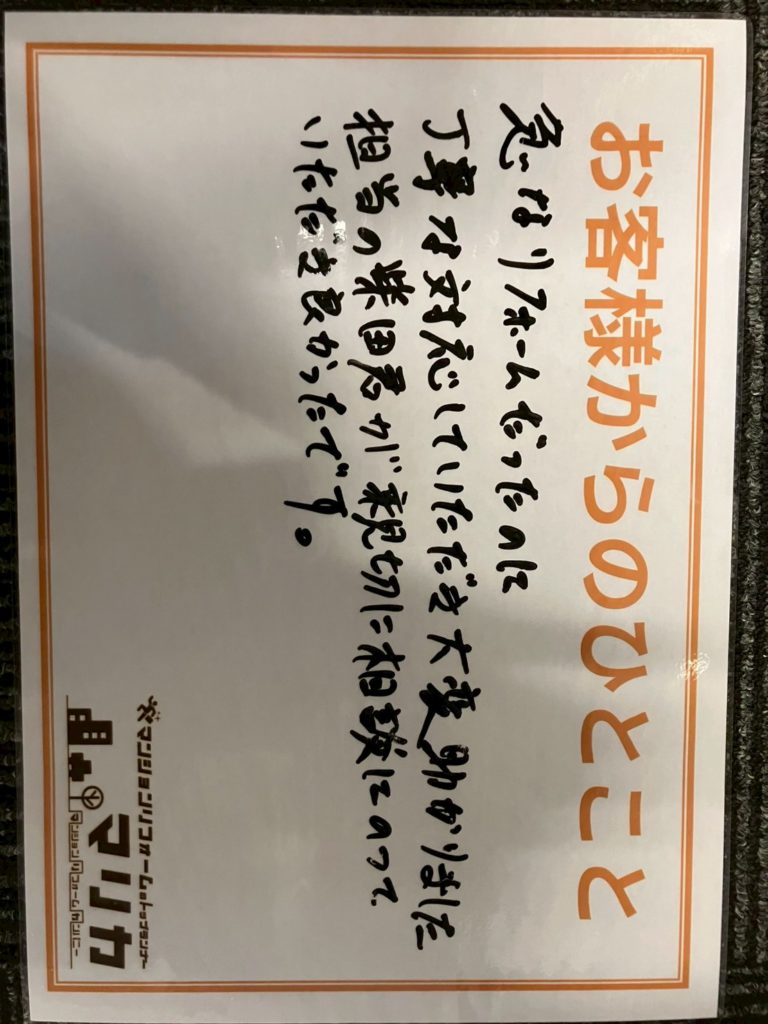 お客様からのひとこと
急なリフォームだったのに
丁寧な対応していただき大変助かりました
担当の柴田君が親切に相談にのって
いただき良かったです。
マンションリフォームのトップランナー
マリカ
マンションリフォームカンパニー